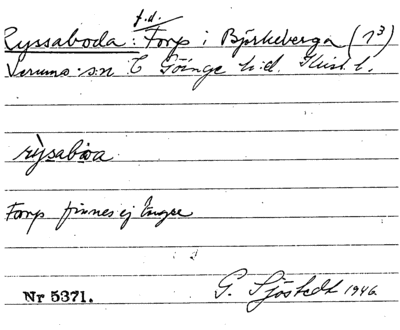 f.d.
Ryssaboda: Torp i Björkeberga (1³)
Verums sn V Göinge h:d. Krist. l.
rỳsaboa
Torp finnes ej längre
Nr 5371. G. Sjöstedt 1946